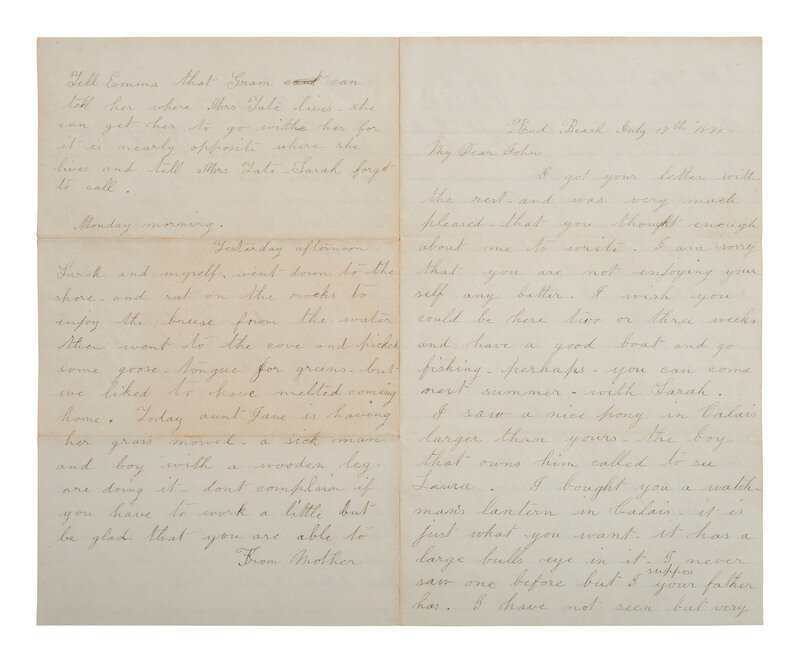 Tell Emma that Gram cant can
tell her where Mrs Tate lives - she
can get her to go with her for
it is nearly opposite where she
lives and tell Mrs Tate Sarah forgot
to call.
Monday morning.
Yesterday afternoon
Sarah and myself, went down to the
shore - and sat on the rocks to
enjoy the breeze from the water
then went to the cove and picked
some goose-tongue for greens - but
we liked to have melted coming
home. Today aunt Jane is having
her grass mowed - a sick man
and boy with a wooden leg
are doing it - dont complain if
you have to work a little but
be glad that you are able to
From Mother
Red Beach July 17th "1880"
My Dear John
I got your letter with
the rest - and was very much
pleased - that you thought enough
about me to write. I am sorry
that you are not enjoying your
self any better. I wish you
could be here two or three weeks
and have a good boat and go
fishing. perhaps - you can come
next summer - with Sarah.
I saw a nice pony in Calais
larger than yours - the boy
that owns him called to see
Laura. I bought you a watch-
man's lantern in Calais - it is
just what you want - it has a
large bulls eye in it - I never
saw one before but I suppose your father
has. I have not seen but very